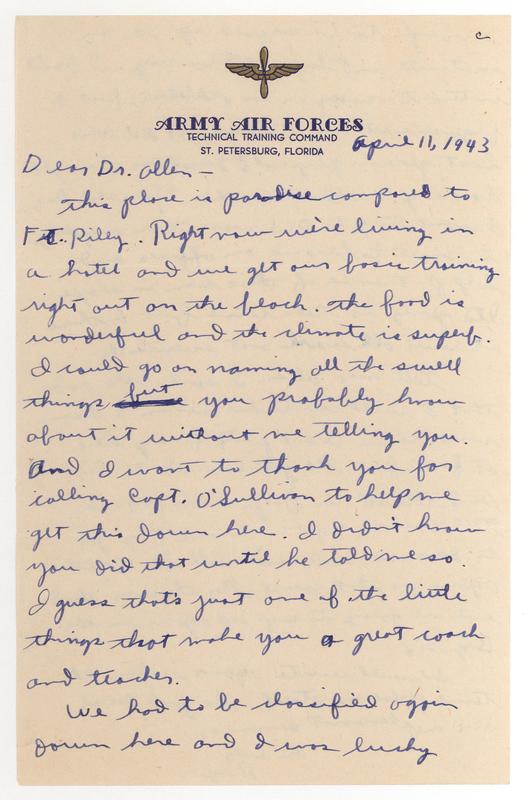 c
ARMY AIR FORCES
TECHNICAL TRAINING COMMAND
ST. PETERSBURG, FLORIDA
April 11, 1943
Dear Dr. Allen —
This place is paradise compared to
Ft. Riley. Right now we're living in
a hotel and we get our basic training
right out on the beach. The food is
wonderful and the climate is superb.
I could go on naming all the swell
things but you probably know
about it without me telling you.
And I want to thank you for
calling Capt. O'Sullivan to help me
get this down here. I didn't know
you did that until he told me so.
I guess that's just one of the little
things that make you a great coach
and teacher.
We had to be classified again
down here and I was lucky